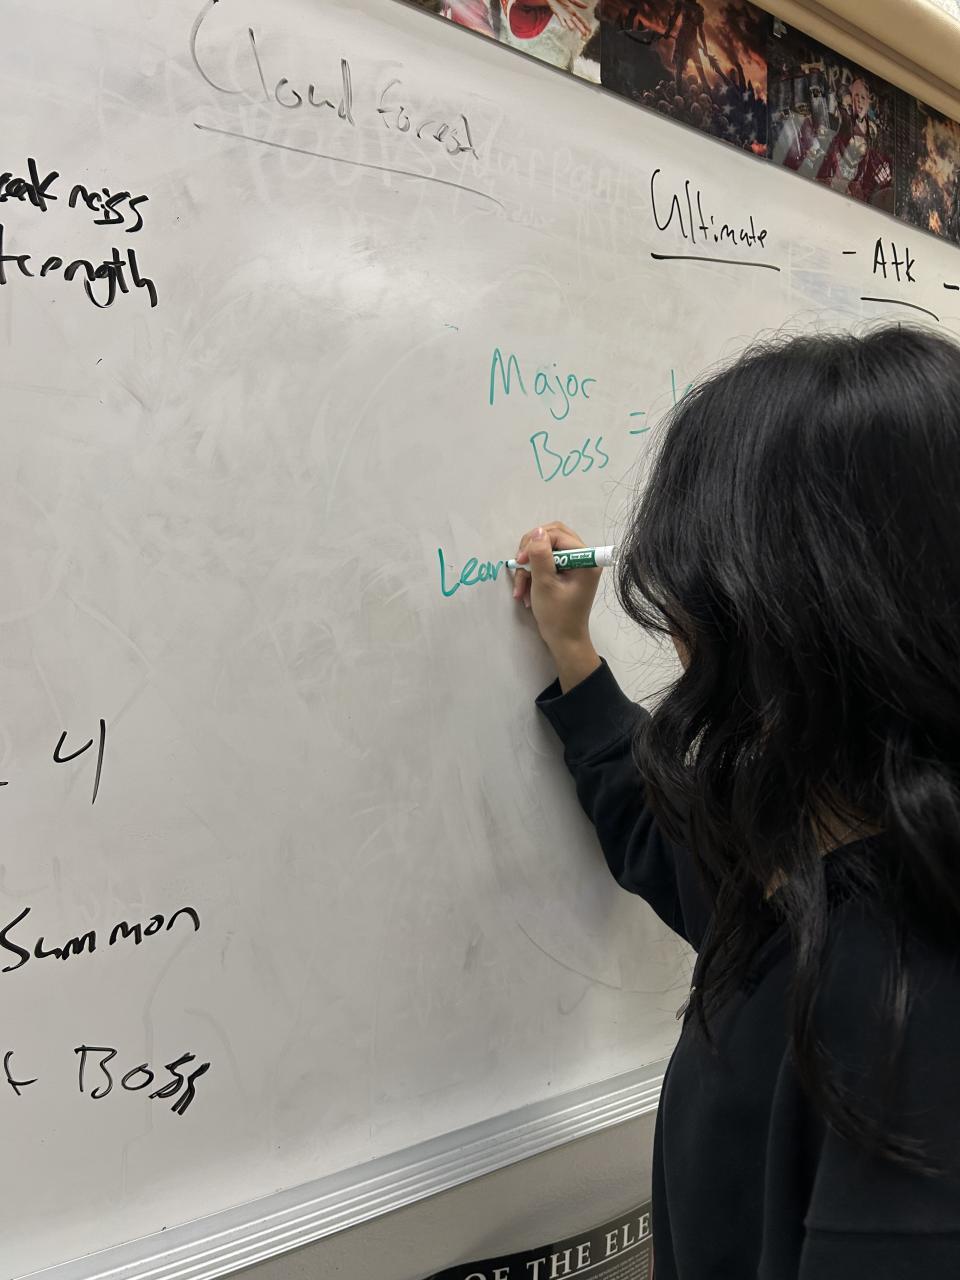 Cloud forest
eakness
trength
Ultimate - Atk -
Major
Boss =
Lear
4
Summon
Boss
OF THE ELE